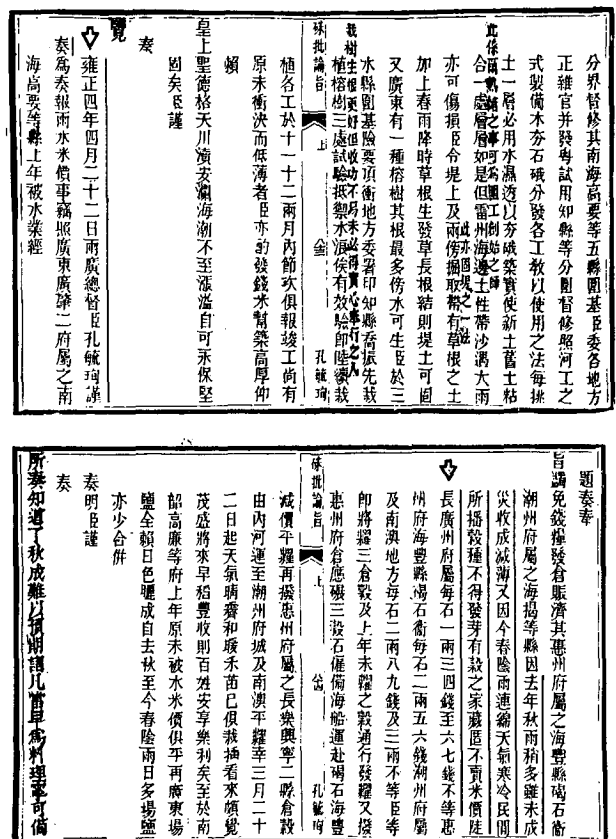 分界督修其南海高要等五縣圍基臣委各地方
正雜官并發粵試用知縣等分圍督修照河工之
式製備木夯石硪分發各工敎以使用之法每挑
土一層必用水濕透以夯硪築實使新土舊土粘
此係爾熟諳之事可爲圍工創始之師
合一處層層如是但雷州海邊土性帶沙遇大雨
此亦固堤之一法
亦可傷損臣令堤上及兩傍掘取帶有草根之土
加上春雨降時草根生發草長根結則堤土可固
又廣東有一種榕樹其根最多傍水可生臣於三
水縣圍基險要頂衝地方委署印知縣喬振先栽
栽樹生根更好但收功不易未必得實心奉行之人
植榕樹三處試驗抵禦水浪俟有效驗卽陸續栽
硃批諭旨
上
孔毓珣
植各工於十一十二兩月內節次俱報竣工尚有
原未衝決而低薄者臣亦酌發錢米幫築高厚仰
賴
皇上聖德格天川瀆安瀾海潮不至漲溢自可永保堅
固矣臣謹
奏
覽
雍正四年四月二十二日兩廣總督臣孔毓珣謹
奏爲奏報雨水米價事竊照廣東廣肇二府屬之南
海高要等縣上年被水業經
題奏奉
旨蠲免錢糧發倉賑濟其惠州府屬之海豐縣碣石衞
潮州府屬之海揭等縣因去年秋雨稍多雖未成
災收成減薄又因今春陰雨連綿天氣寒冷民間
所播穀種不得發芽有穀之家藏匿不賣米價陡
長廣州府屬每石一兩三四錢至六七錢不等惠
州府海豐縣碣石衞每石二兩五六錢潮州府屬
及南澳地方每石二兩八九錢及三兩不等臣等
卽將糶三倉穀及上年未糶之穀通行發糶又撥
惠州府倉應碾三穀石僱備海船運赴碣石海豐
硃批諭旨
上
孔毓珣
減價平糶再撥惠州府屬之長樂興寧二縣倉穀
由內河運至潮州府城及南澳平糶幸三月二十
二日起天氣晴霽和暖禾苗已俱栽插看來頗覺
茂盛將來早稻豐收則百姓安享樂利矣至於南
韶高廉等府上年原未被水米價俱平再廣東場
鹽全賴日色曬成自去秋至今春陰雨日多場鹽
亦少合併
奏明臣謹
奏
所奏知道了秋成難以預期諸凡當早爲料理寧可備